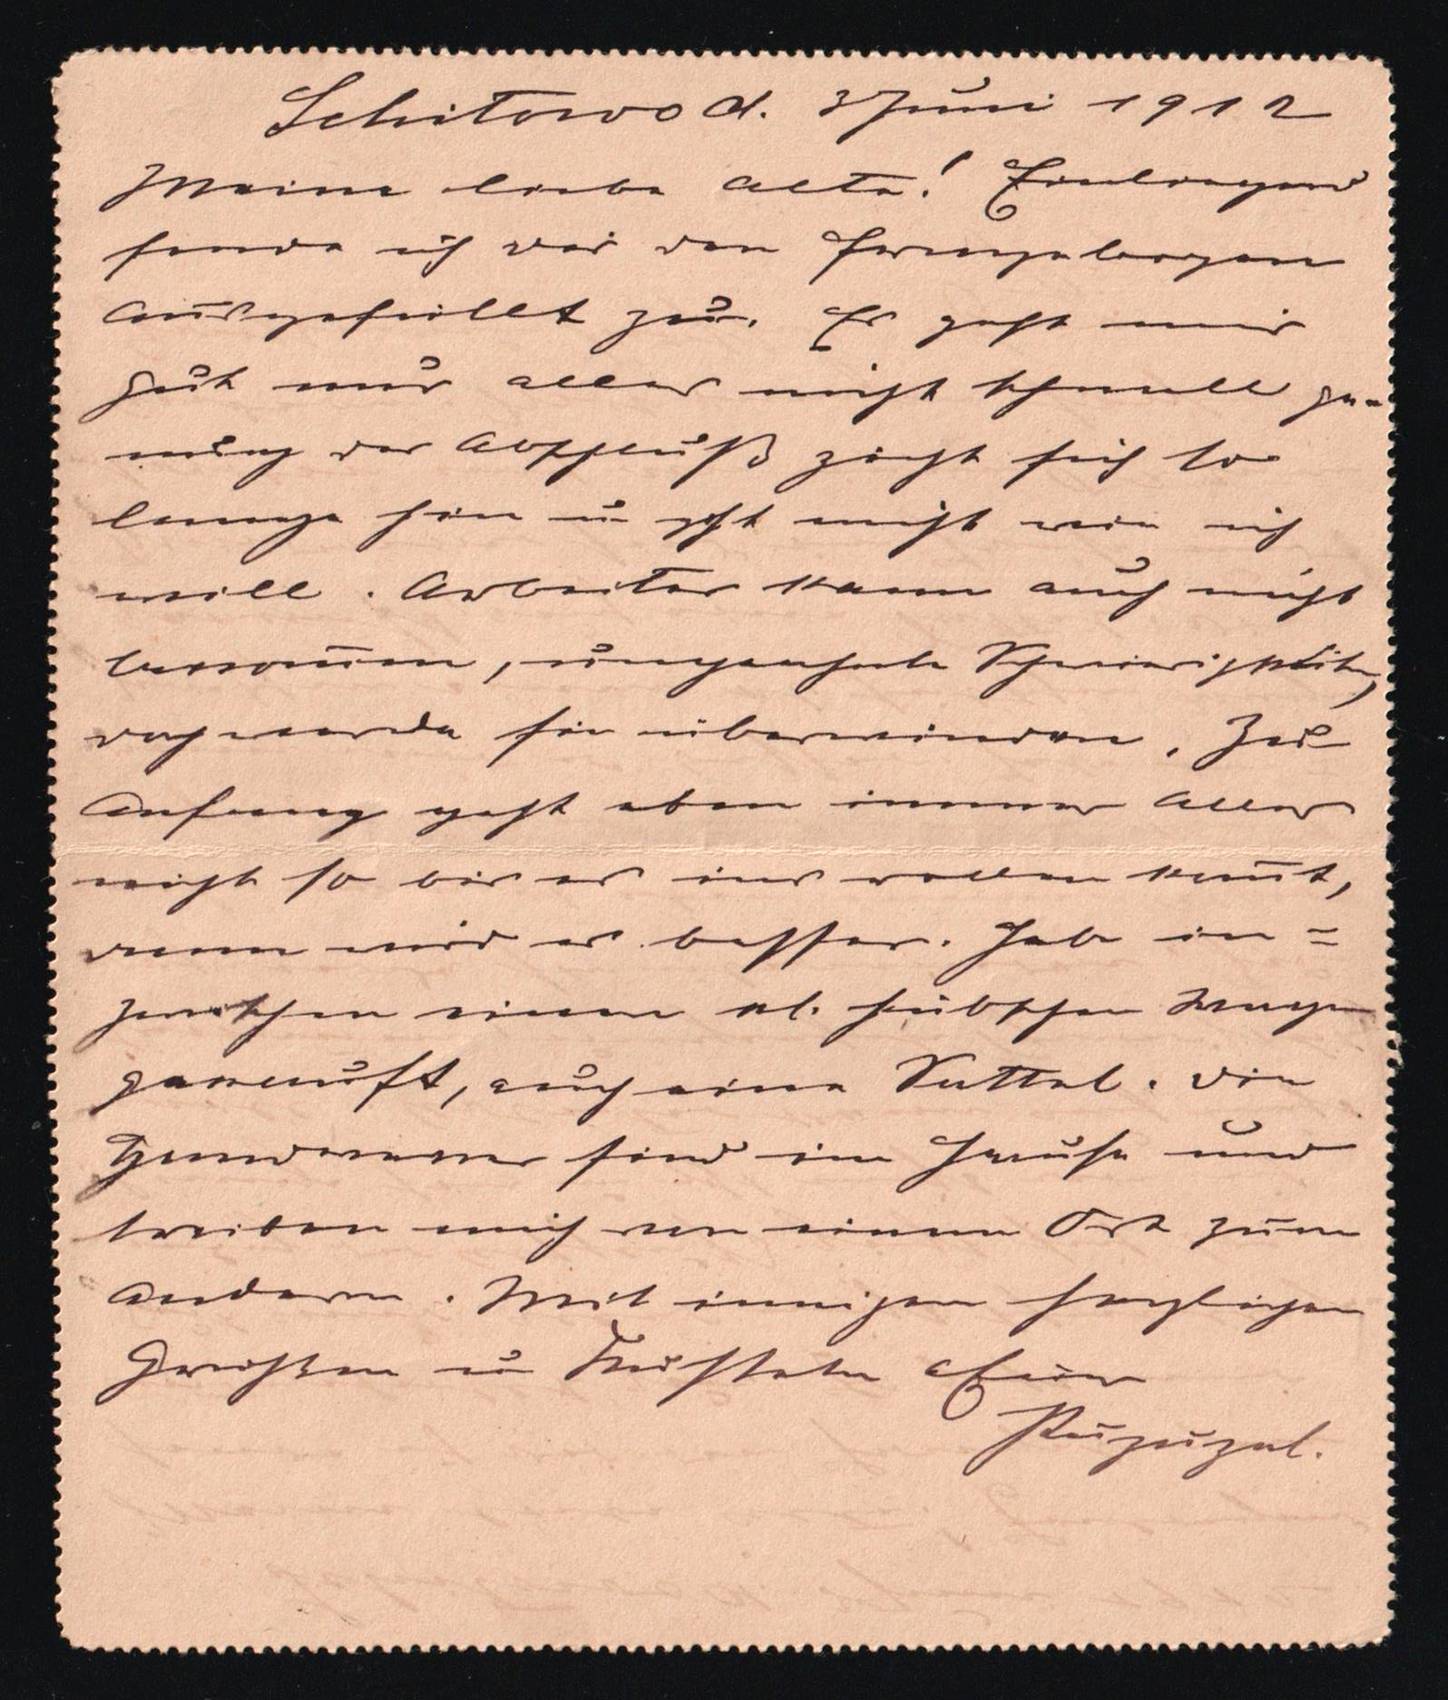 Schitowo d. 3 Juni 1912
Meine liebe Alte! Einliegend
sende ich dir den Fragebogen
ausgefüllt zu. Es geht mir
gut nur alles nicht schnell ge-
nung der Abschluß zieht sich so
lange hin u geht nicht wie ich
will. Arbeiter kann auch nicht
bekom̅en, ungeahnte Schwierigkeiten,
doch werde sie überwinden. Zu
Anfang geht eben immer alles
nicht so bis es ins rollen kom̅t,
dann wird es besser. Habe in=
zwischen einen kl. hübschen Wagen
gekauft, auch einen Sattel. die
Handwerker sind im Hause und
treiben mich von einem Ort zum
andern. Mit innigen herzlichen
Grüßen u Küssen Euer